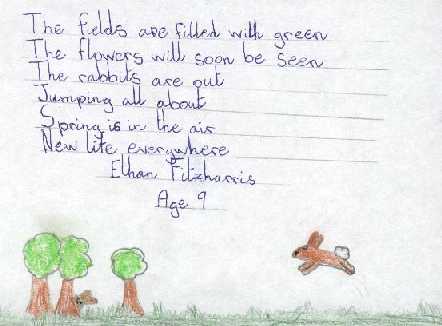 The fields are filled with green
The flowers will soon be seen
The rabbits are out
Jumping all about
Spring is in the air
New life everywhere
Ethan Fitzharris
Age 9